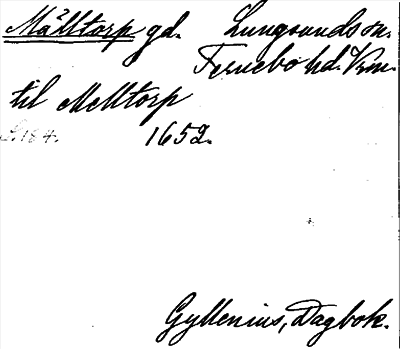 Målltorp gd. Lungsunds sn.
Fernebo hd. Vrm.
til Melltorp
S. 184. 1652.
Gyllenius, Dagbok.